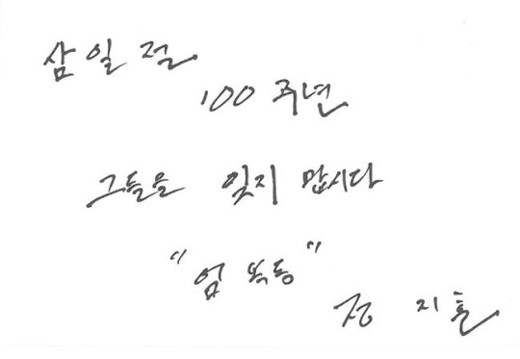 삼일절
100 주년
그들을 잊지 맙시다
"엄복동"
정지훈